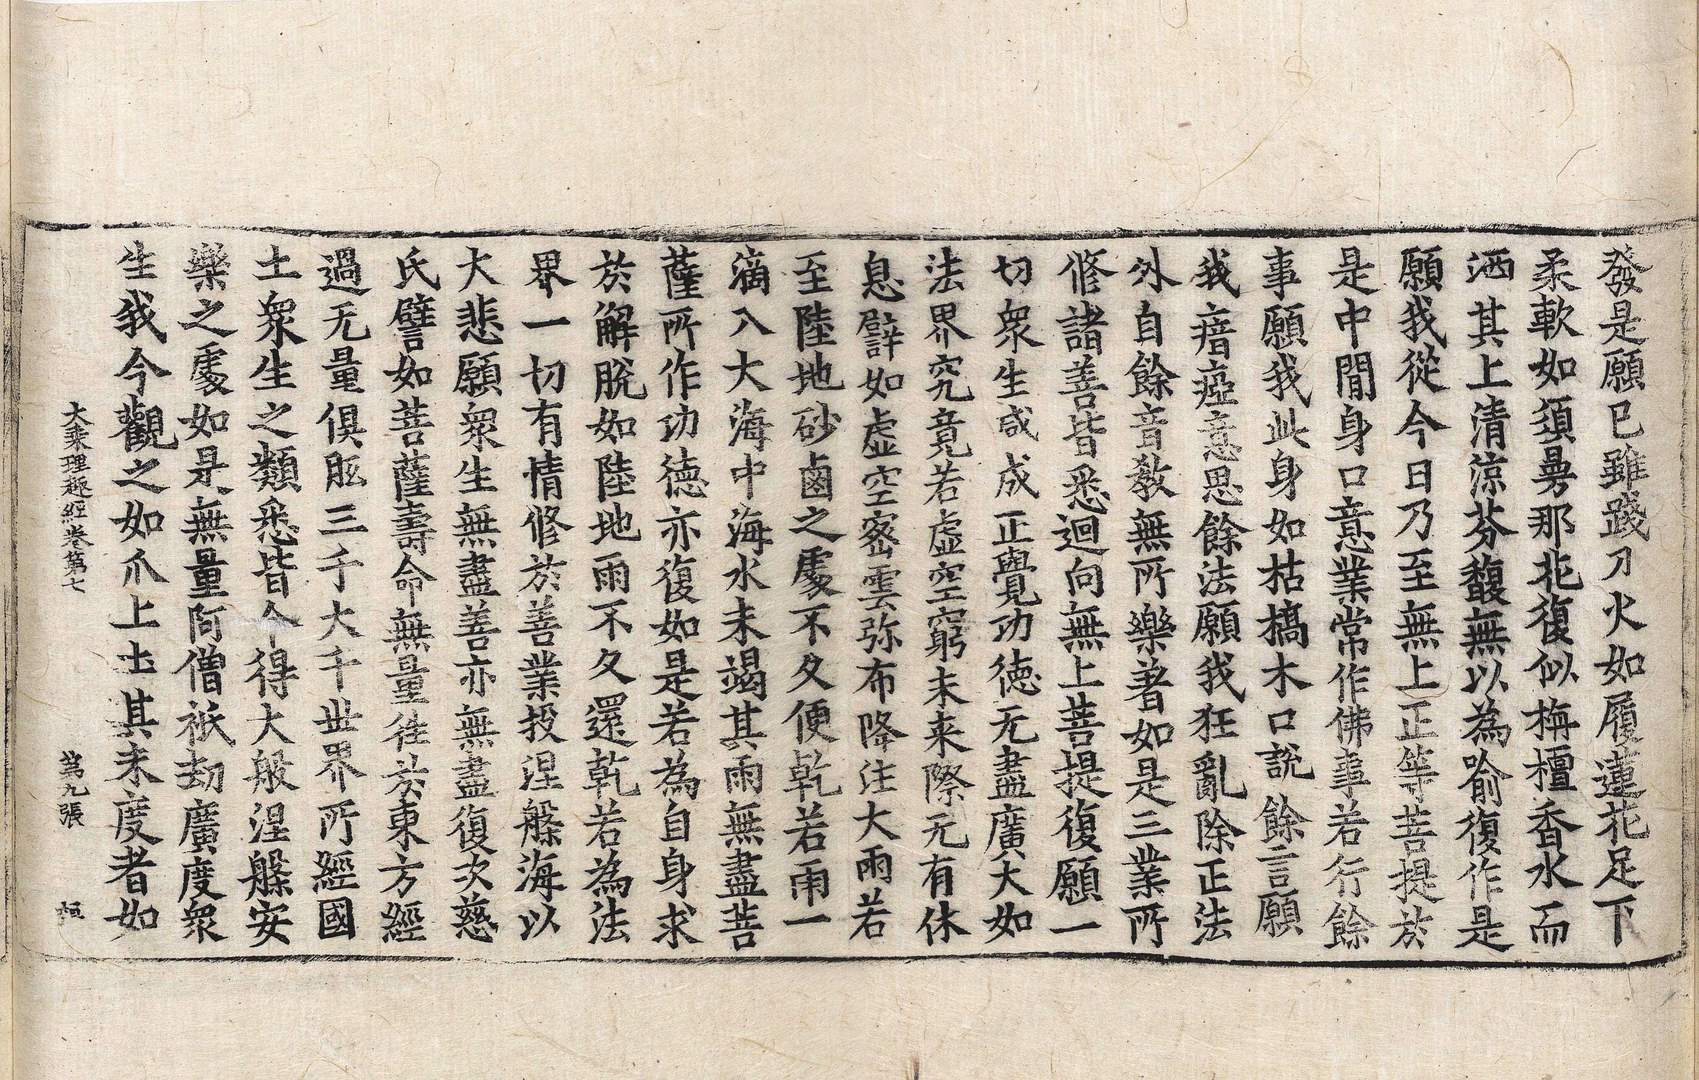 發是願已雖踐刀火如履蓮花足下
柔軟如須曼那花復似栴檀香水而
洒其上清涼芬馥無以為喻復作是
願我從今日乃至無上正等菩提於
是中閒身口意業常作佛事若行餘
事願我此身如枯槁木口說餘言願
我瘖瘂意思餘法願我狂亂除正法
外自餘音教無所樂著如是三業所
修諸善皆悉迴向無上菩提復願一
切衆生咸成正覺功德无盡廣大如
法界究竟若虛空窮未来際元有休
息譬如虛空密雲弥布降注大雨若
至陸地砂鹵之處不久便乾若雨一
滴入大海中海水未竭其雨無盡菩
薩所作功德亦復如是若為自身求
於解脫如陸地雨不久還乾若為法
界一切有情修於善業投涅槃海以
大悲願衆生無盡善亦無盡復次慈
氏譬如菩薩壽命無量往於東方經
過无量俱胝三千大千世界所經國
土衆生之類悉皆令得大般涅槃安
樂之處如是無量阿僧祇劫廣度衆
生我今觀之如爪上土其未度者如
大乘理趣經卷第七 第九張 垣